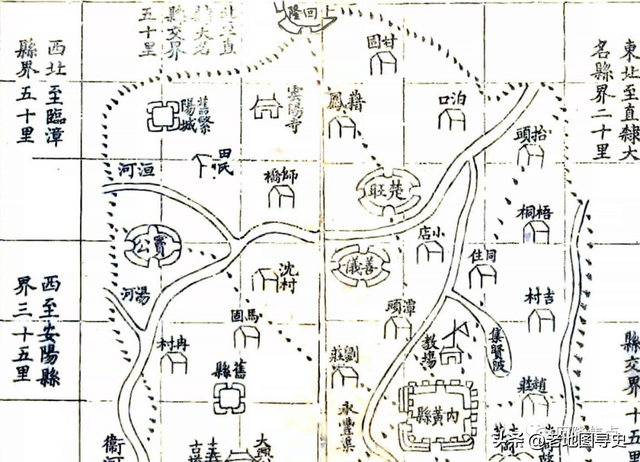 東北至直隸大
名縣界二十里
北至直
隸大名
縣交界
五十里
西北至臨漳
縣界五十里
回隆
甘固
泊口
抬頭
雲陽寺
舊繁
陽城
田氏
洹河
師橋
楚旺
梧桐
小店
同住
竇公
善儀
沈村
湯河
馬固
潭頭
吉村
西至安陽縣
界三十五里
冉村
舊縣
劉莊
教場
集賢陂
趙莊
內黃縣
永豐渠
衛河
大興
縣交界十五里
头条 @老地图寻史